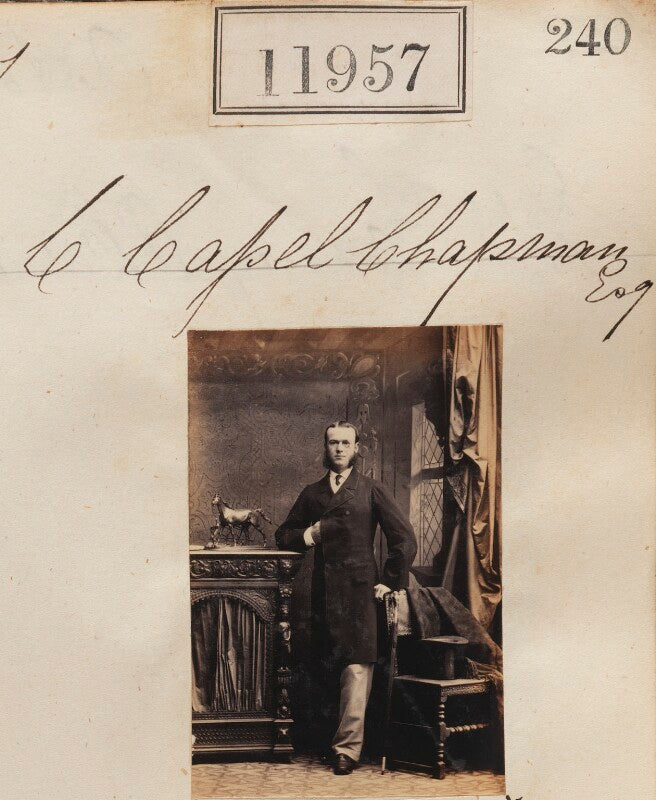 11957
240
C Capel Chapman
Esq